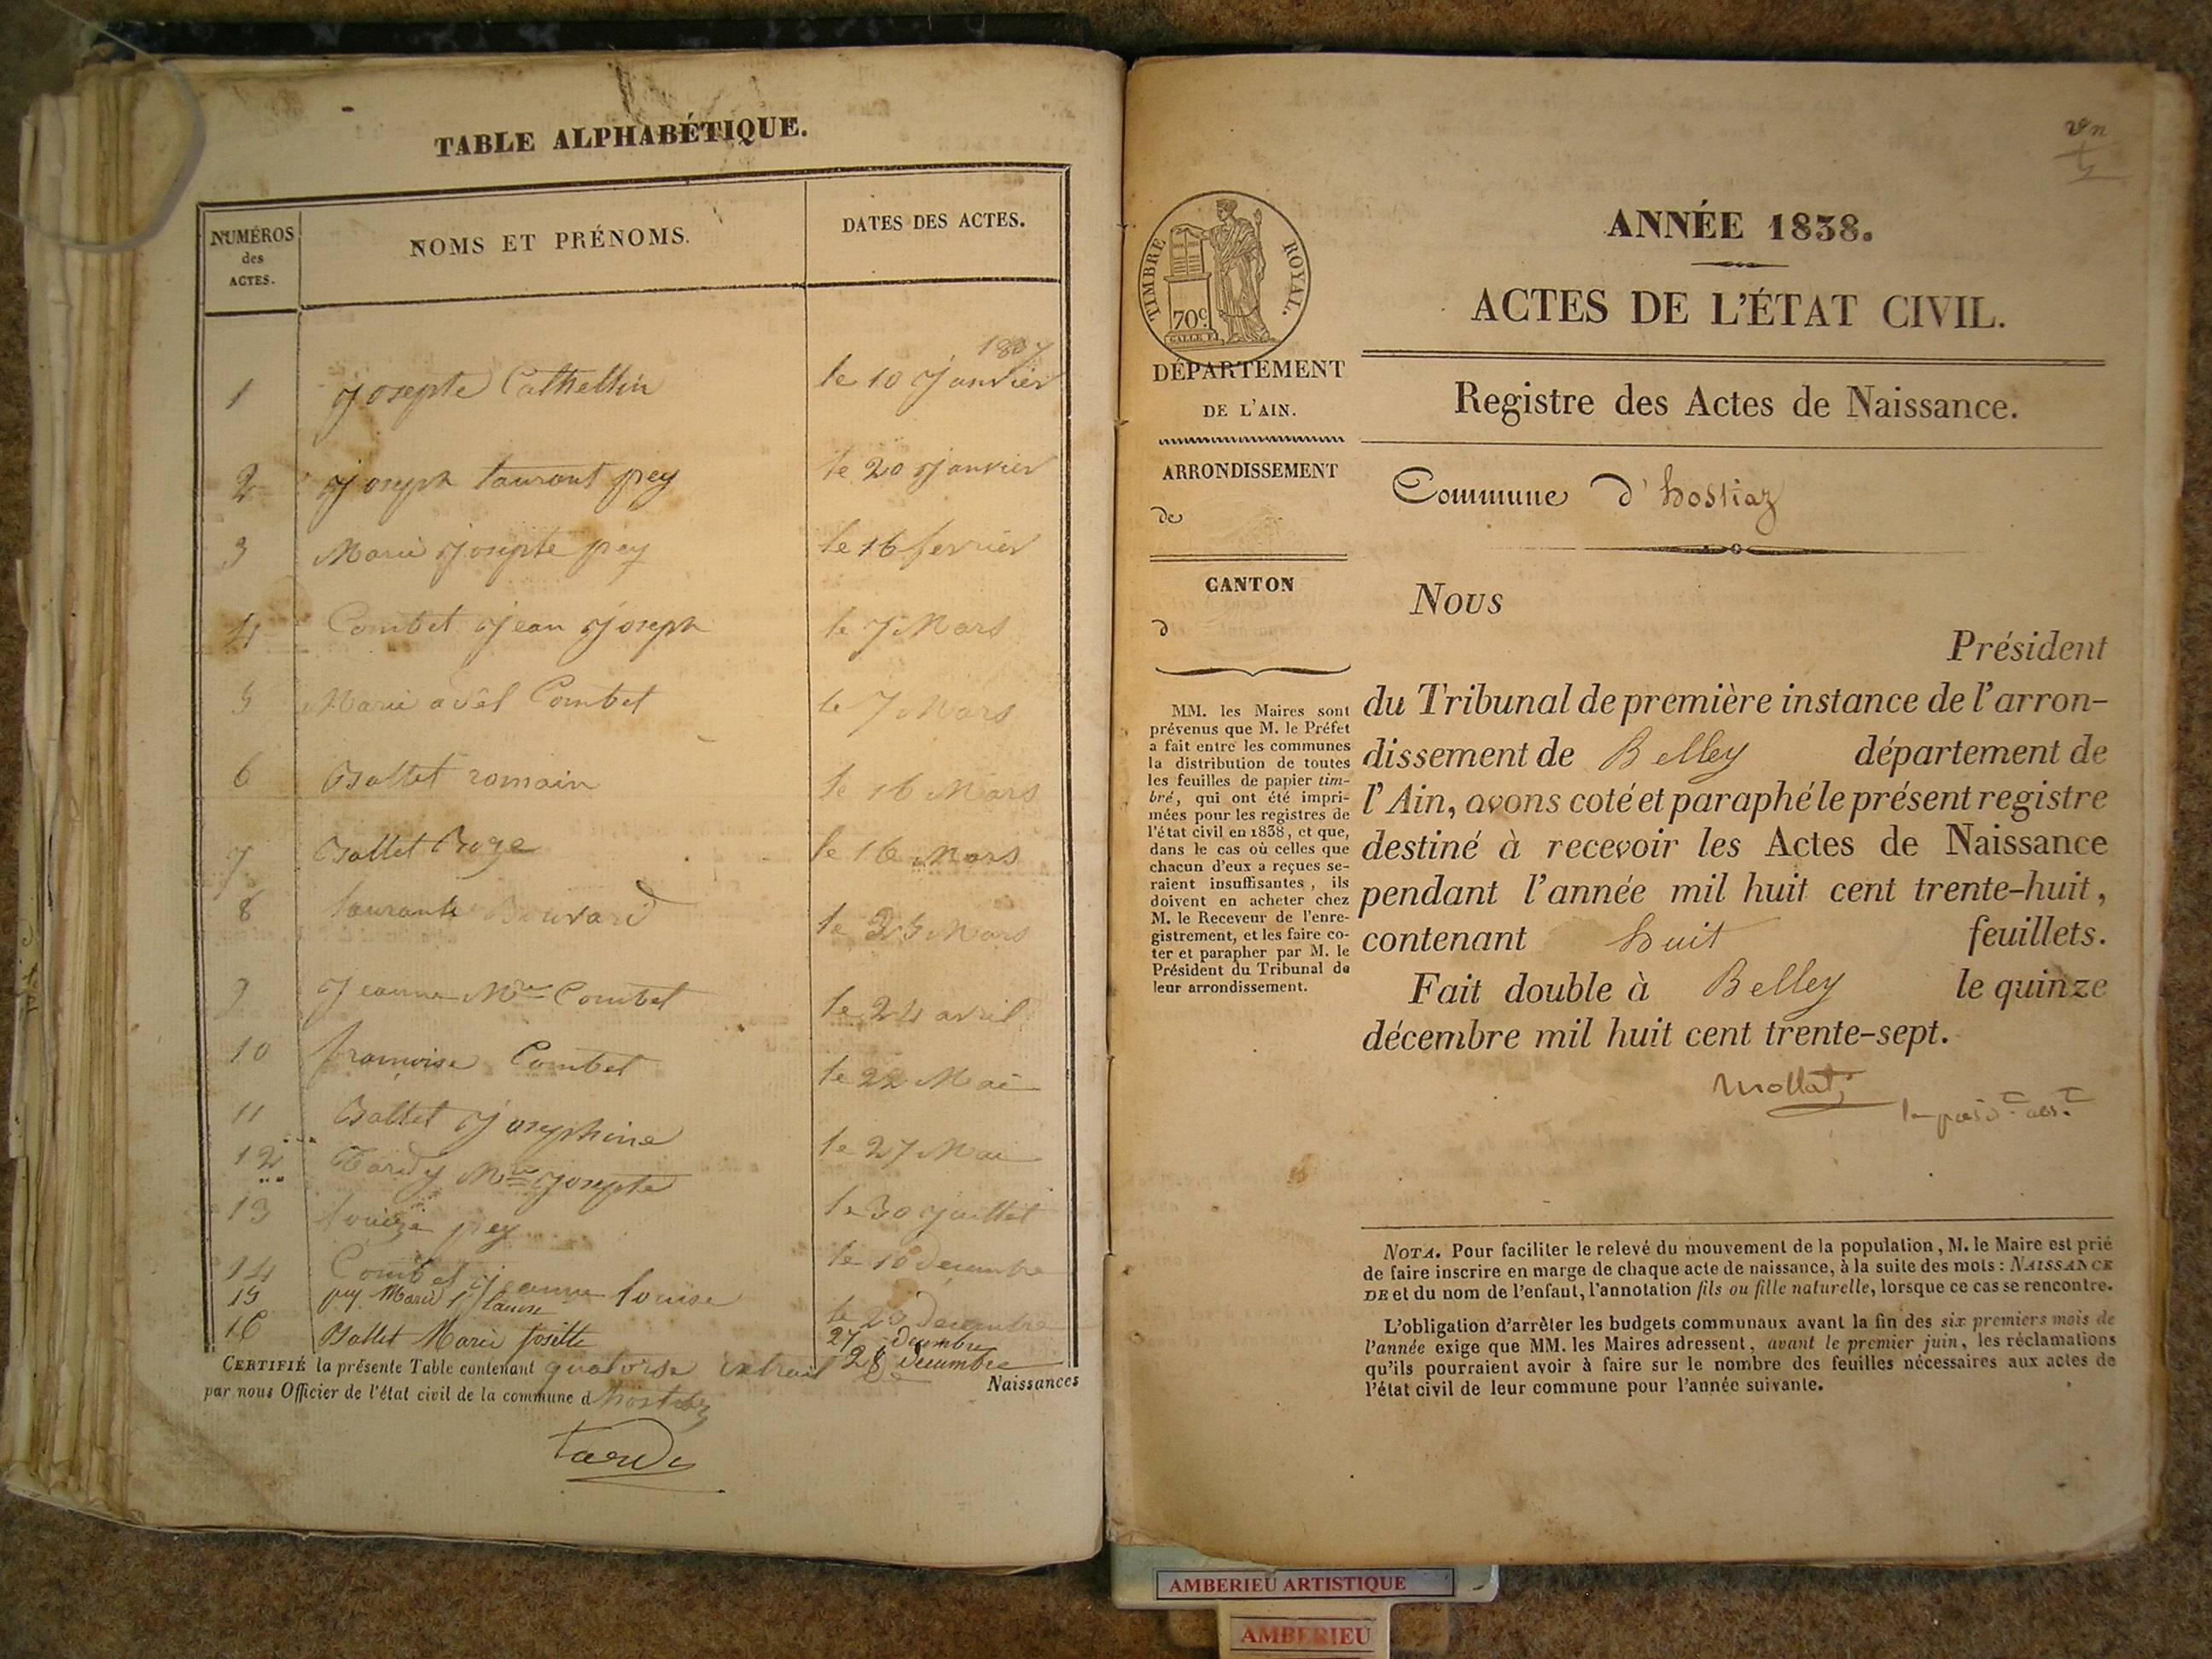 TABLE ALPHABÉTIQUE.
NUMÉROS des ACTES.
NOMS ET PRÉNOMS.
DATES DES ACTES.
1837
1 Josepte Cathellin le 10 Janvier
2 Joseph laurant pey le 20 Janvier
3 Marie Josepte pey le 16 fevrier
4 Combet Jean Joseph le 7 Mars
5 Marie adél Combet le 7 Mars
6 Ballet romain le 16 Mars
7 Ballet Roze le 16 Mars
8 laurante Bouvard le 25 Mars
9 Jeanne Mie Combet le 24 avril
10 françoise Combet le 22 Mai
11 Ballet Josephine le 27 Mai
12 Tardy Mie Josepte le 30 Juillet
13 louise pey le 10 decembre
14 Combet Jeanne louise le 23 Decembre
15 pey Marie 27 decembre
16 Ballet Marie Josette 28 decembre
CERTIFIÉ la présente Table contenant quatorse extrait de Naissances
par nous Officier de l'état civil de la commune d hostiaz
Tardy
TIMBRE ROYAL.
70c.
DÉPARTEMENT
DE L'AIN.
ARRONDISSEMENT
de
CANTON
d
MM. les Maires sont
prévenus que M. le Préfet
a fait entre les communes
la distribution de toutes
les feuilles de papier tim-
bré, qui ont été impri-
mées pour les registres de
l'état civil en 1838, et que,
dans le cas où celles que
chacun d'eux a reçues se-
raient insuffisantes, ils
doivent en acheter chez
M. le Receveur de l'enre-
gistrement, et les faire co-
ter et parapher par M. le
Président du Tribunal de
leur arrondissement.
ANNÉE 1838.
ACTES DE L'ÉTAT CIVIL.
Registre des Actes de Naissance.
Commune d'hostiaz
Nous
Président
du Tribunal de première instance de l'arron-
dissement de Belley département de
l'Ain, avons coté et paraphé le présent registre
destiné à recevoir les Actes de Naissance
pendant l'année mil huit cent trente-huit,
contenant huit feuillets.
Fait double à Belley le quinze
décembre mil huit cent trente-sept.
Mollat
NOTA. Pour faciliter le relevé du mouvement de la population, M. le Maire est prié
de faire inscrire en marge de chaque acte de naissance, à la suite des mots : NAISSANCE
DE et du nom de l'enfant, l'annotation fils ou fille naturelle, lorsque ce cas se rencontre.
L'obligation d'arrêter les budgets communaux avant la fin des six premiers mois de
l'année exige que MM. les Maires adressent, avant le premier juin, les réclamations
qu'ils pourraient avoir à faire sur le nombre des feuilles nécessaires aux actes de
l'état civil de leur commune pour l'année suivante.
AMBERIEU ARTISTIQUE
AMBERIEU